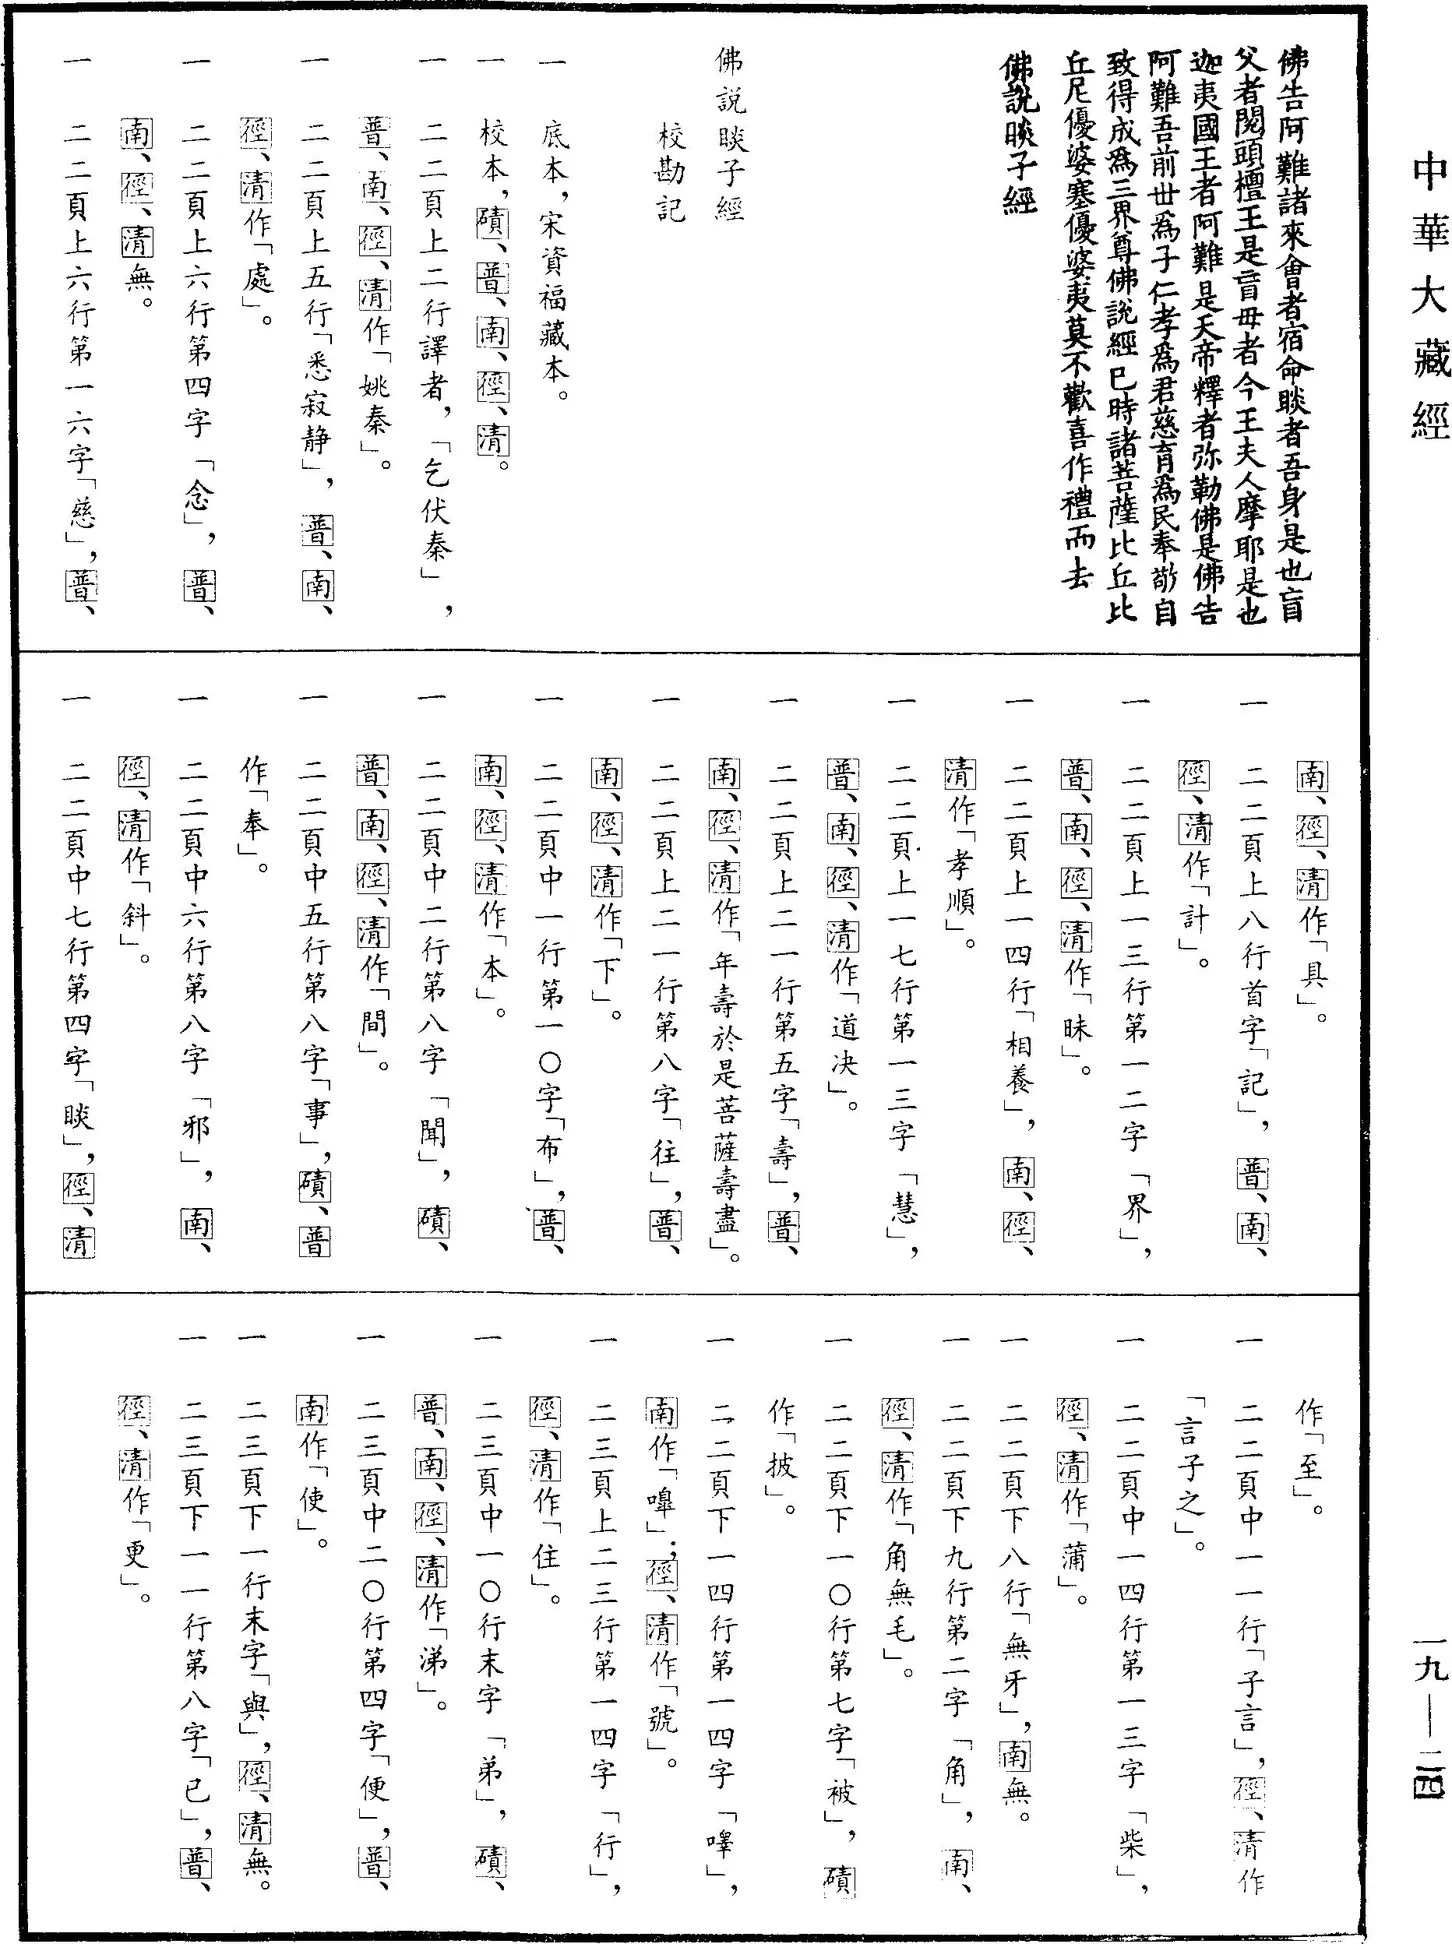 中華大藏經
一九—二四
佛告阿難諸來會者宿命睒者吾身是也盲
父者閱頭檀王是盲母者今王夫人摩耶是也
迦夷國王者阿難是天帝釋者弥勒佛是佛告
阿難吾前世爲子仁孝爲君慈育爲民奉敬自
致得成爲三界尊佛說經已時諸菩薩比丘比
丘尼優婆塞優婆夷莫不歡喜作禮而去
佛說睒子經
佛說睒子經
校勘記
一　底本，宋資福藏本。
一　校本，磧、普、南、徑、清。
一　二二頁上二行譯者，「乞伏秦」，
普、南、徑、清作「姚秦」。
一　二二頁上五行「悉寂静」，普、南、
徑、清作「處」。
一　二二頁上六行第四字「念」，普、
南、徑、清無。
一　二二頁上六行第一六字「慈」，普、
南、徑、清作「具」。
一　二二頁上八行首字「記」，普、南、
徑、清作「計」。
一　二二頁上一三行第一二字「界」，
普、南、徑、清作「昧」。
一　二二頁上一四行「相養」，南、徑、
清作「孝順」。
一　二二頁上一七行第一三字「慧」，
普、南、徑、清作「道决」。
一　二二頁上二一行第五字「壽」，普、
南、徑、清作「年壽於是菩薩壽盡」。
一　二二頁上二一行第八字「往」，普、
南、徑、清作「下」。
一　二二頁中一行第一〇字「布」，普、
南、徑、清作「本」。
一　二二頁中二行第八字「聞」，磧、
普、南、徑、清作「間」。
一　二二頁中五行第八字「事」，磧、普
作「奉」。
一　二二頁中六行第八字「邪」，南、
徑、清作「斜」。
一　二二頁中七行第四字「睒」，徑、清
作「至」。
一　二二頁中一一行「子言」，徑、清作
「言子之」。
一　二二頁中一四行第一三字「柴」，
徑、清作「蒲」。
一　二二頁下八行「無牙」，南無。
一　二二頁下九行第二字「角」，南、
徑、清作「角無毛」。
一　二二頁下一〇行第七字「被」，磧
作「披」。
一　二二頁下一四行第一四字「嘷」，
南作「嗥」；徑、清作「號」。
一　二三頁上二三行第一四字「行」，
徑、清作「住」。
一　二三頁中一〇行末字「弟」，磧、
普、南、徑、清作「涕」。
一　二三頁中二〇行第四字「便」，普、
南作「使」。
一　二三頁下一行末字「與」，徑、清無。
一　二三頁下一一行第八字「已」，普、
徑、清作「更」。